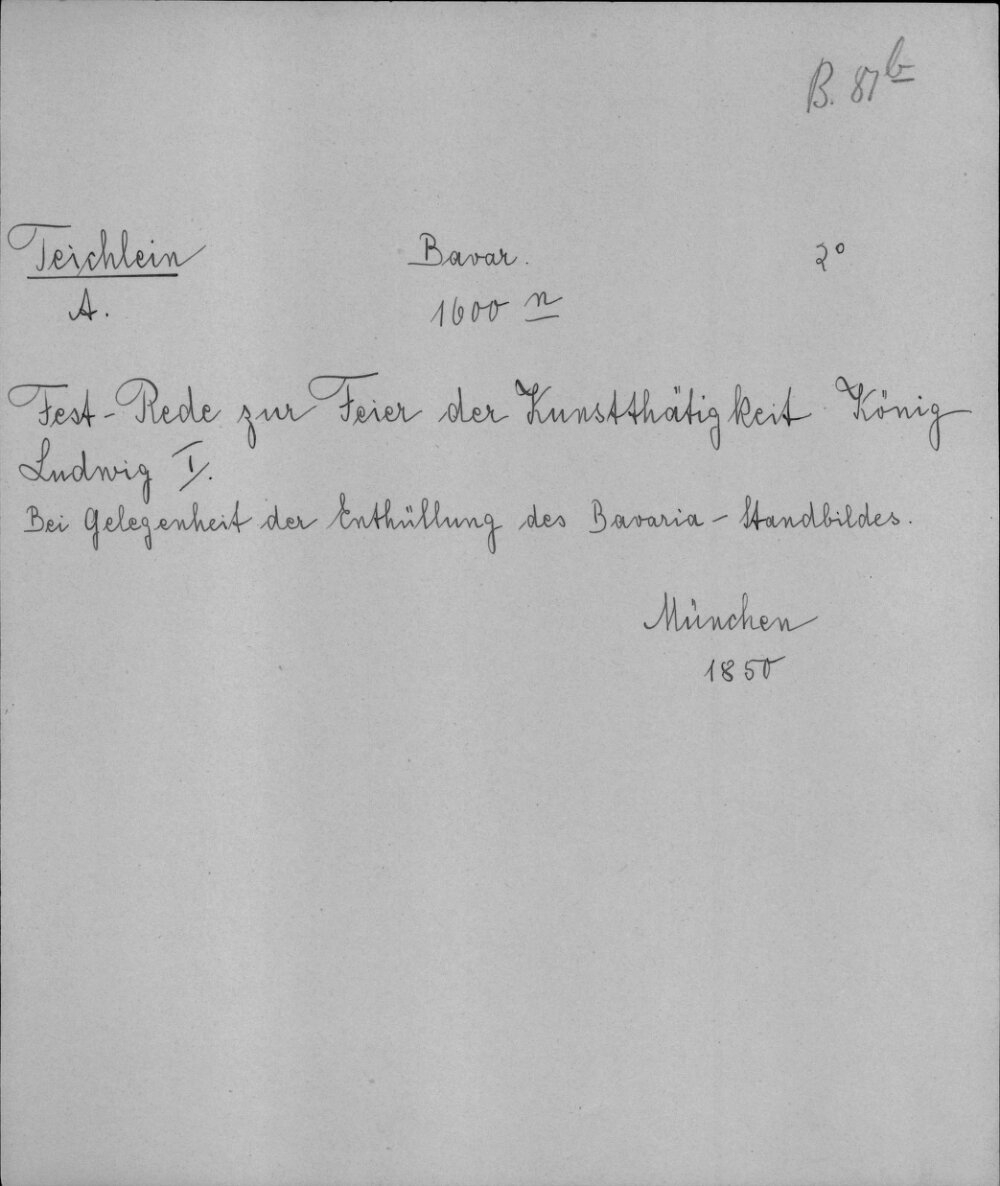 B. 87 b
Teichlein Bavar. 2°
A. 1600 n
Fest-Rede zur Feier der Kunstthätigkeit König
Ludwig I.
Bei Gelegenheit der Enthüllung des Bavaria-Standbildes.
München
1850